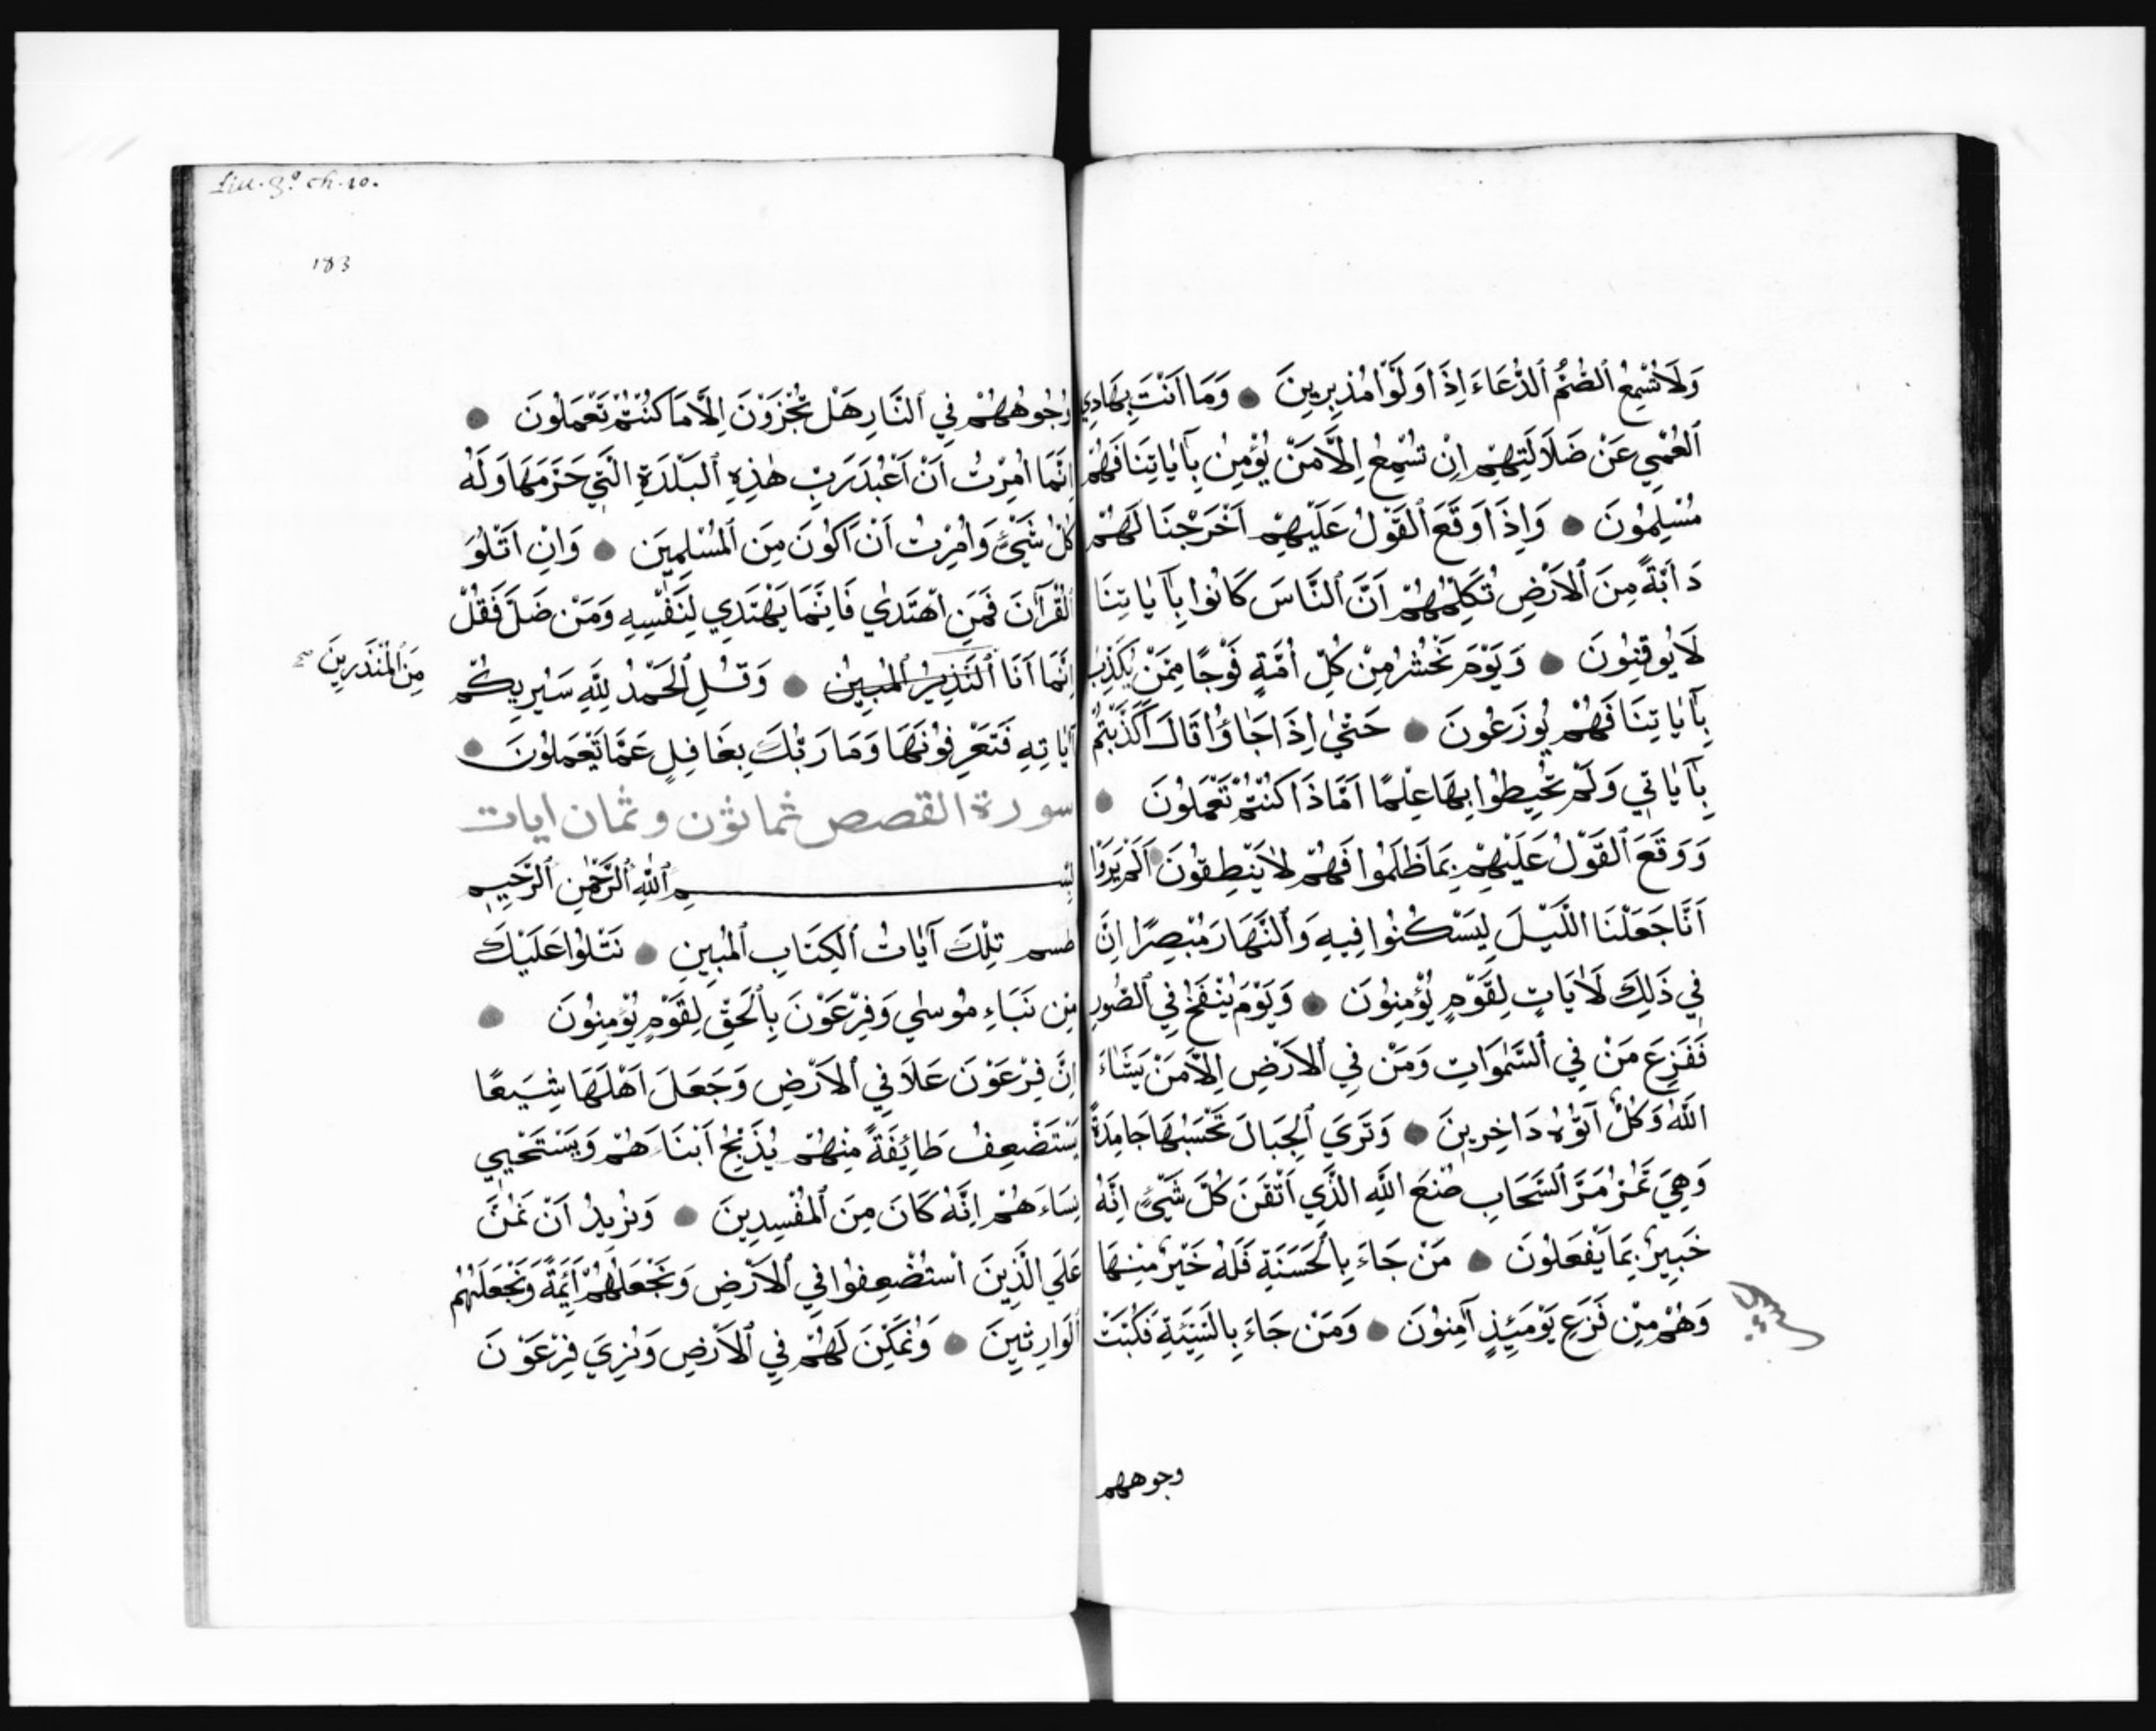 وَلَا تُسْمِعُ ٱلصُّمَّ ٱلدُّعَاءَ اِذَا وَلَّوْا مُدْبِرِينَ ۞ وَمَا اَنْتَ بِهَادِي
ٱلْعُمْيِ عَنْ ضَلَالَتِهِمْ اِنْ تُسْمِعُ اِلَّا مَنْ يُؤْمِنُ بِآيَاتِنَا فَهُمْ
مُسْلِمُونَ ۞ وَاِذَا وَقَعَ ٱلْقَوْلُ عَلَيْهِمْ اَخْرَجْنَا لَهُمْ
دَآبَّةً مِنَ ٱلْاَرْضِ تُكَلِّمُهُمْ اَنَّ ٱلنَّاسَ كَانُوا بِآيَاتِنَا
لَا يُوقِنُونَ ۞ وَيَوْمَ نَحْشُرُ مِنْ كُلِّ اُمَّةٍ فَوْجًا مِمَّنْ يُكَذِّبُ
بِآيَاتِنَا فَهُمْ يُوزَعُونَ ۞ حَتّٰي اِذَا جَاؤُا قَالَ اَكَذَّبْتُمْ
بِآيَاتِي وَلَمْ تُحِيطُوا بِهَا عِلْمًا اَمَّا ذَا كُنْتُمْ تَعْمَلُونَ ۞
وَوَقَعَ ٱلْقَوْلُ عَلَيْهِمْ بِمَا ظَلَمُوا فَهُمْ لَا يَنْطِقُونَ ۞ اَلَمْ يَرَوْا
اَنَّا جَعَلْنَا اللَّيْلَ لِيَسْكُنُوا فِيهِ وَٱلنَّهَارَ مُبْصِرًا اِنَّ
فِي ذَلِكَ لَاٰيَاتٍ لِقَوْمٍ يُؤْمِنُونَ ۞ وَيَوْمَ يُنْفَخُ فِي ٱلصُّورِ
فَفَزِعَ مَنْ فِي ٱلسَّمٰوَاتِ وَمَنْ فِي ٱلْاَرْضِ اِلَّا مَنْ يَشَاءَ
اللّٰهُ وَكُلٌّ آتَوْهُ دَاخِرِينَ ۞ وَتَرَي ٱلْجِبَالَ تَحْسَبُهَا جَامِدَةً
وَهِيَ تَمُرُّ مَرَّ ٱلسَّحَابِ صُنْعَ اللّٰهِ الَّذِي اَتْقَنَ كُلَّ شَيْءٍ اِنَّهُ
خَبِيرٌ بِمَا يَفْعَلُونَ ۞ مَنْ جَاءَ بِٱلْحَسَنَةِ فَلَهُ خَيْرٌ مِنْهَا
وَهُمْ مِنْ فَزَعِ يَوْمَئِذٍ آمِنُونَ ۞ وَمَنْ جَاءَ بِالسَّيِّئَةِ فَكُبَّتْ
وجوههم
183
وُجُوهُهُمْ فِي ٱلنَّارِ هَلْ تُجْزَوْنَ اِلَّا مَا كُنْتُمْ تَعْمَلُونَ ۞
اِنَّمَا اُمِرْتُ اَنْ اَعْبُدَ رَبَّ هٰذِهِ ٱلْبَلْدَةِ الَّتِي حَرَّمَهَا وَلَهُ
كُلُّ شَيْءٍ وَاُمِرْتُ اَنْ اَكُونَ مِنَ ٱلْمُسْلِمِينَ ۞ وَاَنْ اَتْلُوَ
ٱلْقُرْآنَ فَمَنِ اهْتَدٰي فَاِنَّمَا يَهْتَدِي لِنَفْسِهِ وَمَنْ ضَلَّ فَقُلْ
اِنَّمَا اَنَا ٱلنَّذِيرُ ٱلْمُبِينُ ۞ وَقُلِ ٱلْحَمْدُ لِلّٰهِ سَيُرِيكُمْ
مِنَ ٱلْمُنْذِرِينَ صح
آيَاتِهِ فَتَعْرِفُونَهَا وَمَا رَبُّكَ بِغَافِلٍ عَمَّا تَعْمَلُونَ ۞
سورة القصص ثمانون وثمان ايات
بِسْمِ ٱللّٰهِ ٱلرَّحْمٰنِ ٱلرَّحِيمِ
طسم تِلْكَ آيَاتُ ٱلْكِتَابِ ٱلْمُبِينِ ۞ نَتْلُوا عَلَيْكَ
مِنْ نَبَاءِ مُوسٰي وَفِرْعَوْنَ بِٱلْحَقِّ لِقَوْمٍ يُؤْمِنُونَ ۞
اِنَّ فِرْعَوْنَ عَلَا فِي ٱلْاَرْضِ وَجَعَلَ اَهْلَهَا شِيَعًا
يَسْتَضْعِفُ طَائِفَةً مِنْهُمْ يُذَبِّحُ اَبْنَاءَهُمْ وَيَسْتَحْيِي
نِسَاءَهُمْ اِنَّهُ كَانَ مِنَ ٱلْمُفْسِدِينَ ۞ وَنُرِيدُ اَنْ نَمُنَّ
عَلَي الَّذِينَ اسْتُضْعِفُوا فِي ٱلْاَرْضِ وَنَجْعَلَهُمْ اَئِمَّةً وَنَجْعَلَهُمُ
ٱلْوَارِثِينَ ۞ وَنُمَكِّنَ لَهُمْ فِي ٱلْاَرْضِ وَنُرِيَ فِرْعَوْنَ